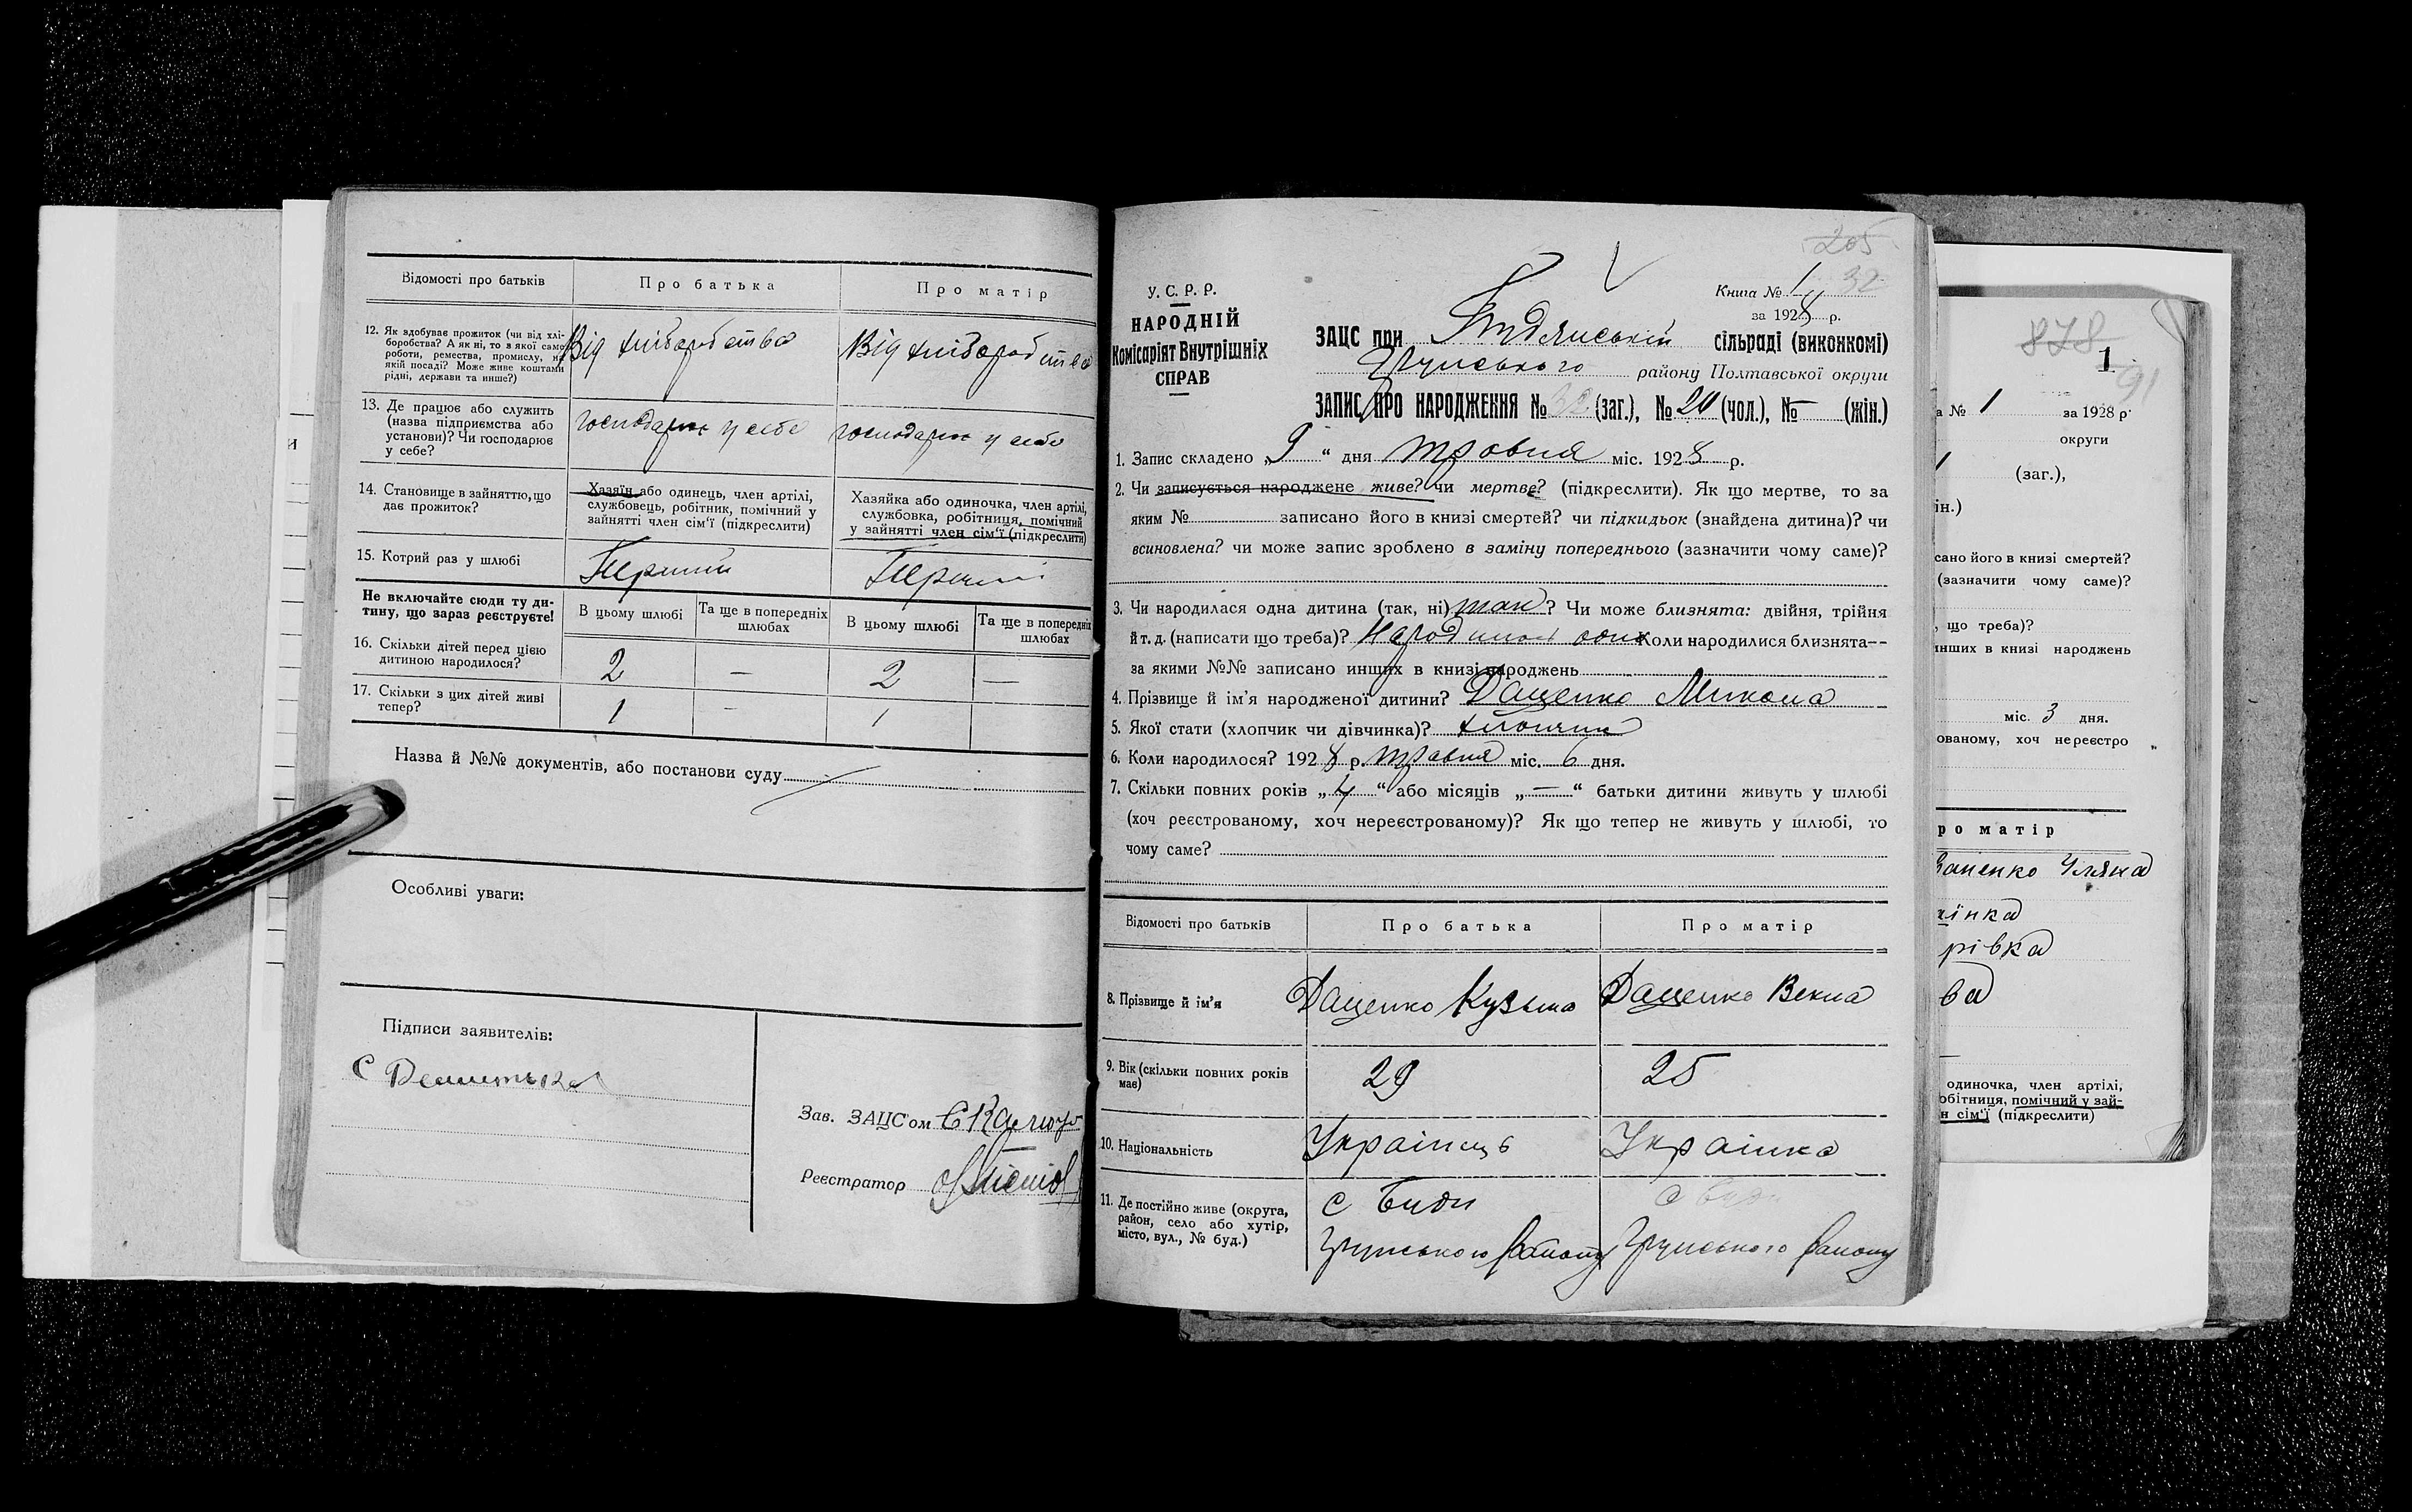 Відомості про батьків Про батька Про матір
12. Як здобуває прожиток (чи від хлі-
боробства? А як ні, то з якої само
роботи, ремества, промислу, на
якій посаді? Може живе коштами
рідні, держави та инше?)
Від хліборобства Від хліборобства
13. Де працює або служить
(назва підприємства або
установи)? Чи господарює
у себе?
господарює у себе господарює у себе
14. Становище в зайняттю, що
дає прожиток?
Хазяїн або одинець, член артілі,
службовець, робітник, помічний у
зайнятті член сім'ї (підкреслити)
Хазяйка або одиночка, член артілі,
службовка, робітниця, помічний
у зайнятті член сім'ї (підкреслити)
15. Котрий раз у шлюбі Перший Перший
Не включайте сюди ту ди-
тину, що зараз реєструєте!
В цьому шлюбі Та ще в попередніх
шлюбах
В цьому шлюбі Та ще в попередніх
шлюбах
16. Скільки дітей перед цією
дитиною народилося?
2 — 2 —
17. Скільки з цих дітей живі
тепер?
1 - 1
Назва й №№ документів, або постанови суду
Особливі уваги:
Підписи заявителів:
Зав. ЗАЦС'ом
Реєстратор
205
32
У. С. Р. Р.
НАРОДНІЙ
Комісаріят Внутрішніх
СПРАВ
Книга № 1
за 1928 р.
ЗАЦС при сільраді (виконкомі)
Грунського району Полтавської округи
ЗАПИС ПРО НАРОДЖЕННЯ № 32 (заг.), № 20 (чол.), № — (жін.)
1. Запис складено „9“ дня травня міс. 1928 р.
2. Чи записується народжене живе? чи мертве? (підкреслити). Як що мертве, то за
яким № записано його в книзі смертей? чи підкидьок (знайдена дитина)? чи
всиновлена? чи може запис зроблено в заміну попереднього (зазначити чому саме)?
3. Чи народилася одна дитина (так, ні) так? Чи може близнята: двійня, трійня
й т. д. (написати що треба)? Народилося одно Коли народилися близнята—
за якими №№ записано инших в книзі народжень
4. Прізвище й ім'я народженої дитини? Даценко Микола
5. Якої стати (хлопчик чи дівчинка)? хлопчик
6. Коли народилося? 1928 р. травня міс. 6 дня.
7. Скільки повних років „4“ або місяців „—“ батьки дитини живуть у шлюбі
(хоч реєстрованому, хоч нереєстрованому)? Як що тепер не живуть у шлюбі, то
чому саме?
Відомості про батьків Про батька Про матір
8. Прізвище й ім'я Даценко Кузьма Даценко Векла
9. Вік (скільки повних років
має)
29 25
10. Національність Українець Українка
11. Де постійно живе (округа,
район, село або хутір,
місто, вул., № буд.)
с Били с Били
Грунського району Грунського району
878
1
91
а № 1 за 1928 р.
округи
(заг.),
ін.)
сано його в книзі смертей?
(зазначити чому саме)?
, що треба)?
инших в книзі народжень
міс. 3 дня.
ованому, хоч нереєстро
ро матір
Уляна
їнка
рівка
ва
одиночка, член артілі,
обітниця, помічний у зай-
н сім'ї (підкреслити)